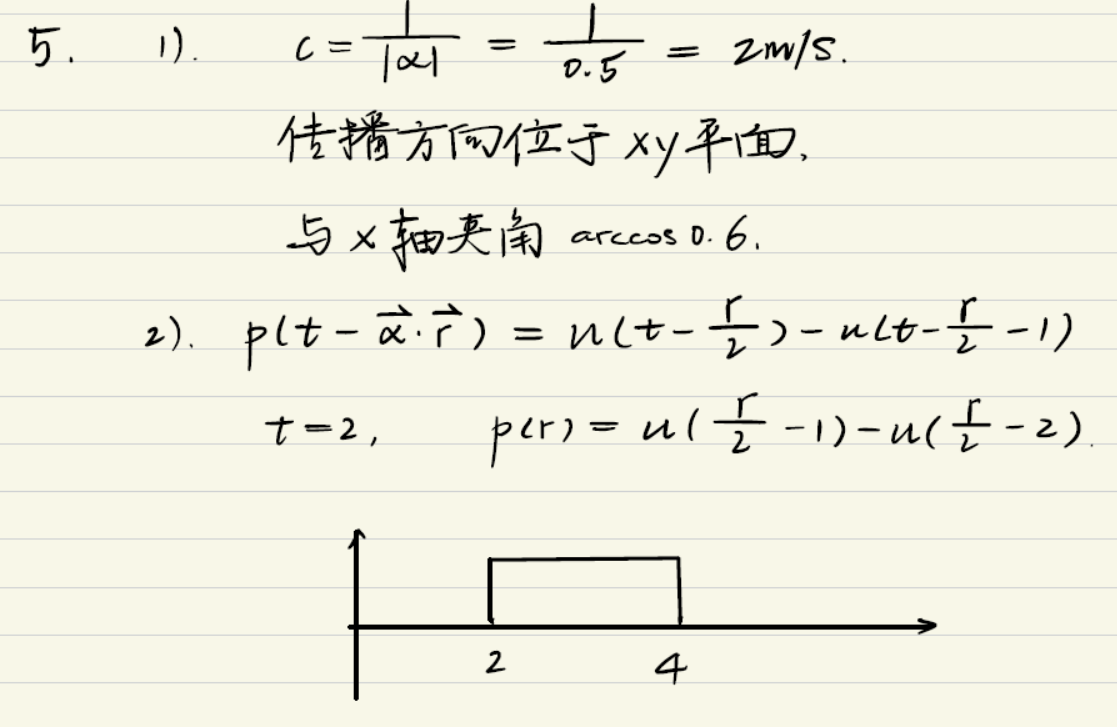 5. 1). c = 1/|α| = 1/0.5 = 2m/s.
传播方向位于 xy 平面,
与 x 轴夹角 arccos 0.6.
2). p(t - α⃗·r⃗) = u(t - r/2) - u(t - r/2 - 1)
t = 2, p(r) = u(r/2 - 1) - u(r/2 - 2).
2 4